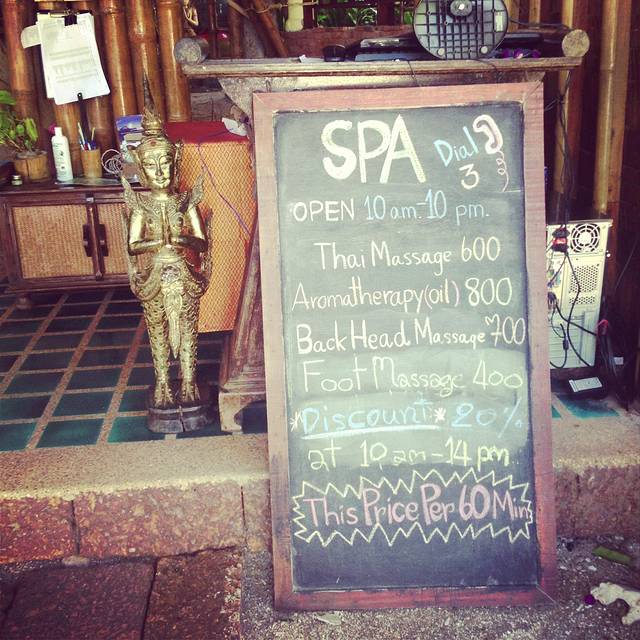 SPA Dial 3
OPEN 10 am-10 pm.
Thai Massage 600
Aromatherapy(oil) 800
Back Head Massage 700
Foot Massage 400
*Discount* 20%
at 10 am-14 pm.
This Price Per 60 Min